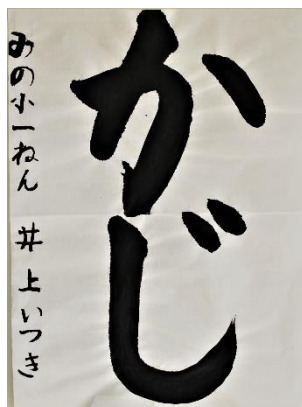 かじ
みの小一ねん 井上いつき